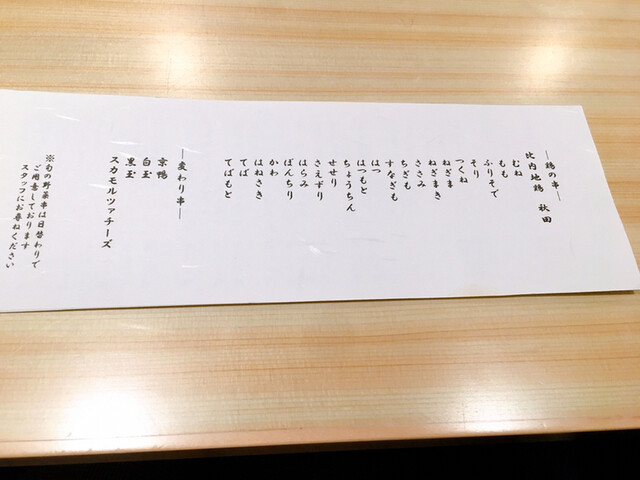 ―鶏の串―
比内地鶏 秋田
むね
もも
ふりそで
そり
つくね
ねぎま
ねぎまき
ささみ
ちぎも
すなぎも
はつ
はつもと
ちょうちん
せせり
さえずり
はらみ
ぼんちり
かわ
はねさき
てば
てばもと
―変わり串―
京鴨
白玉
黒玉
スカモルツァチーズ
※旬の野菜串は日替わりで
ご用意しております
スタッフにお尋ねください